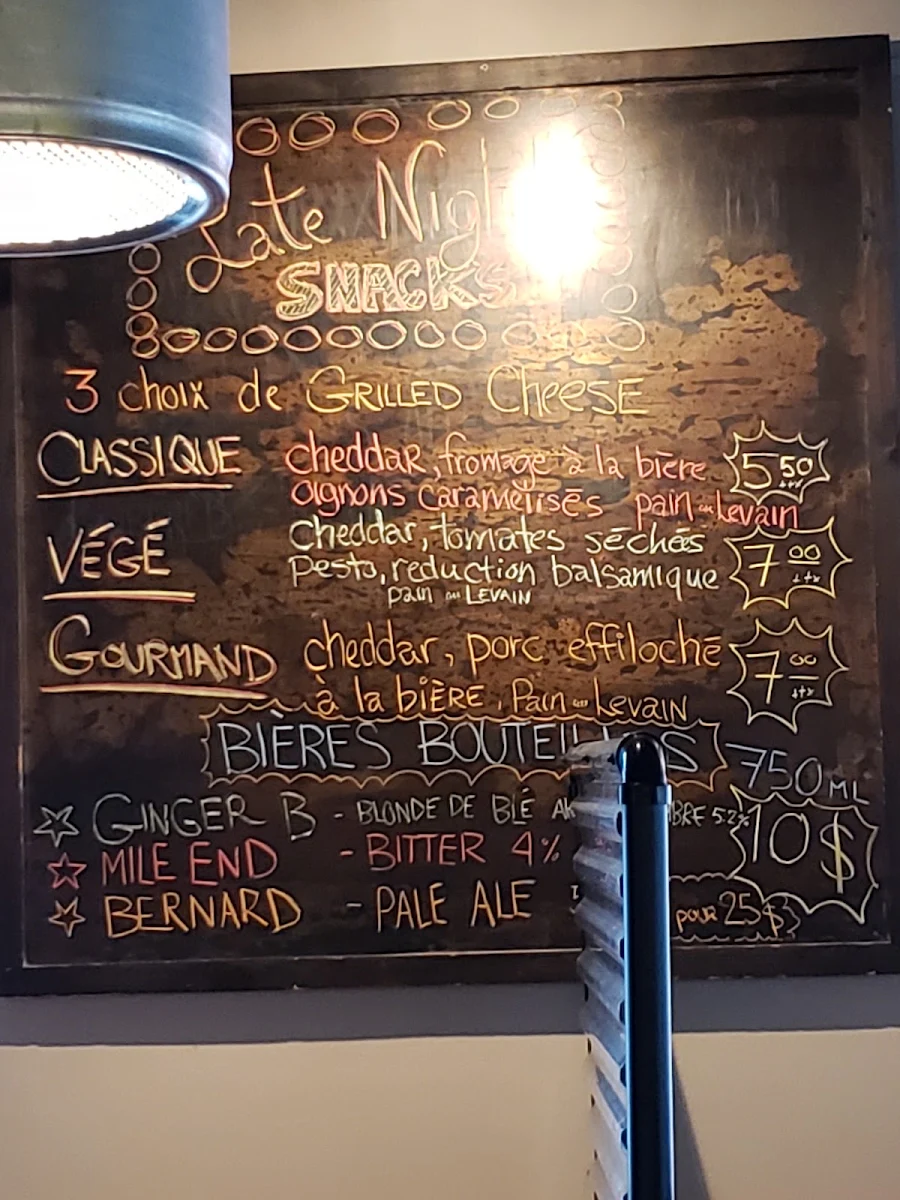 Late
SNACKS
3 choix de GRILLED CHEESE
CLASSIQUE cheddar, fromage à la bière 5 50 +++
oignons caramélisés pain au Levain
VÉGÉ Cheddar, tomates séchées
Pesto, reduction balsamique 7 00 +++
pain au LEVAIN
GOURMAND cheddar, porc effiloché 7 00 +++
à la BIÈRE, Pain au Levain
BIÈRES 750 ML
GINGER B - BLONDE DE BLÉ 5.2% 10 $
MILE END - BITTER 4%
BERNARD - PALE ALE pour 25$